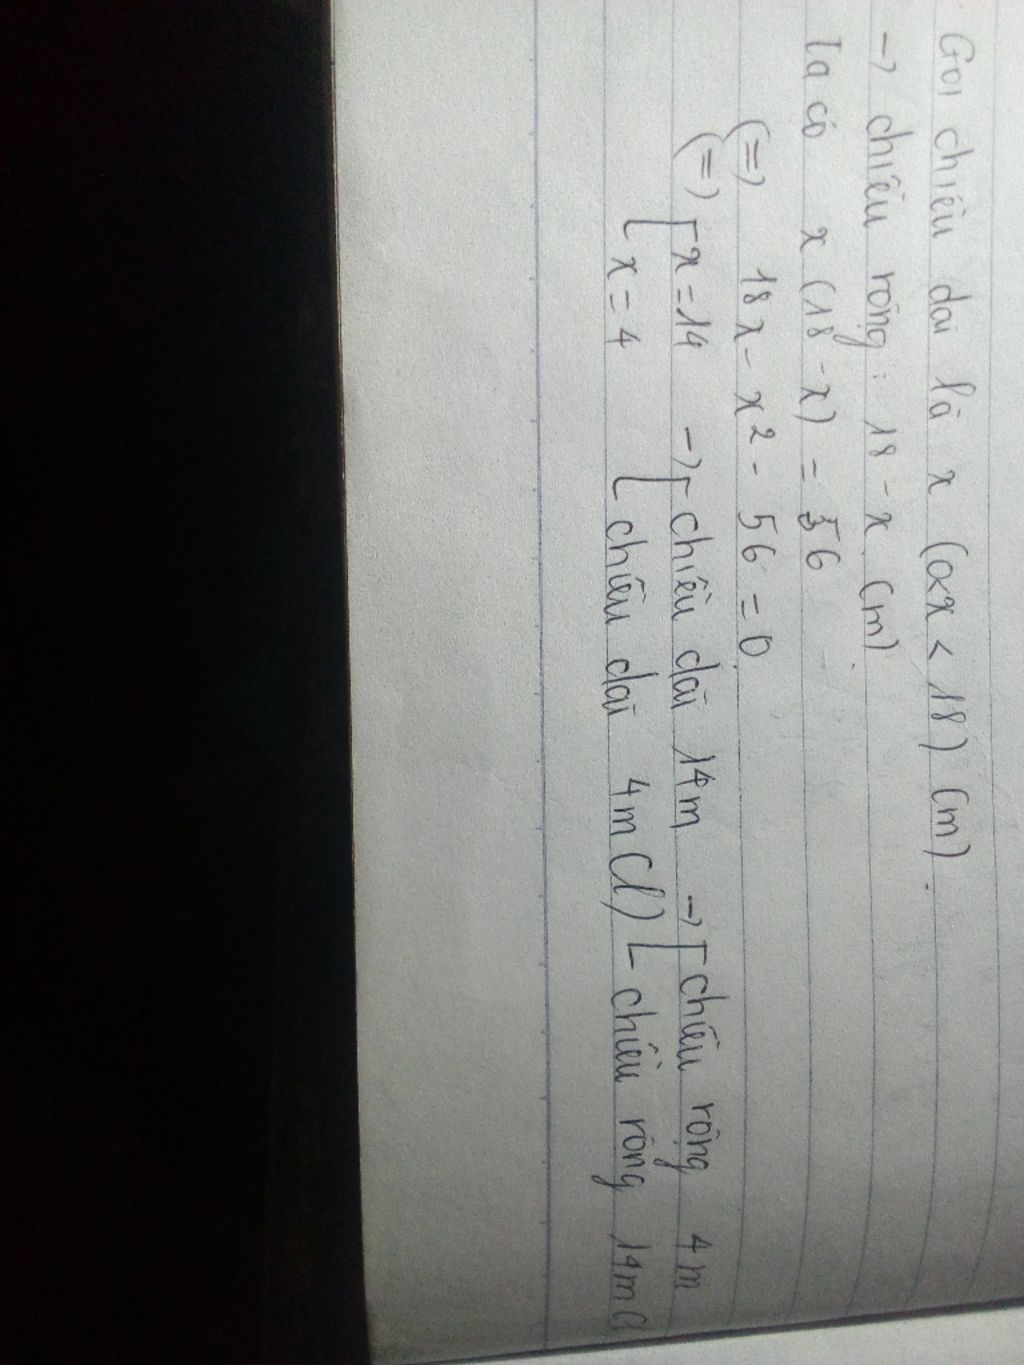 Gọi chiều dài là x (0<x < 18) (m).
→ chiều rộng : 18 - x (m)
Ta có x (18 - x) = 56
(=) 18x - x² - 56 = 0
(=) [ x = 14 → [ chiều dài 14m → [ chiều rộng 4m
[ x = 4 [ chiều dài 4m (l) [ chiều rộng 14m (l